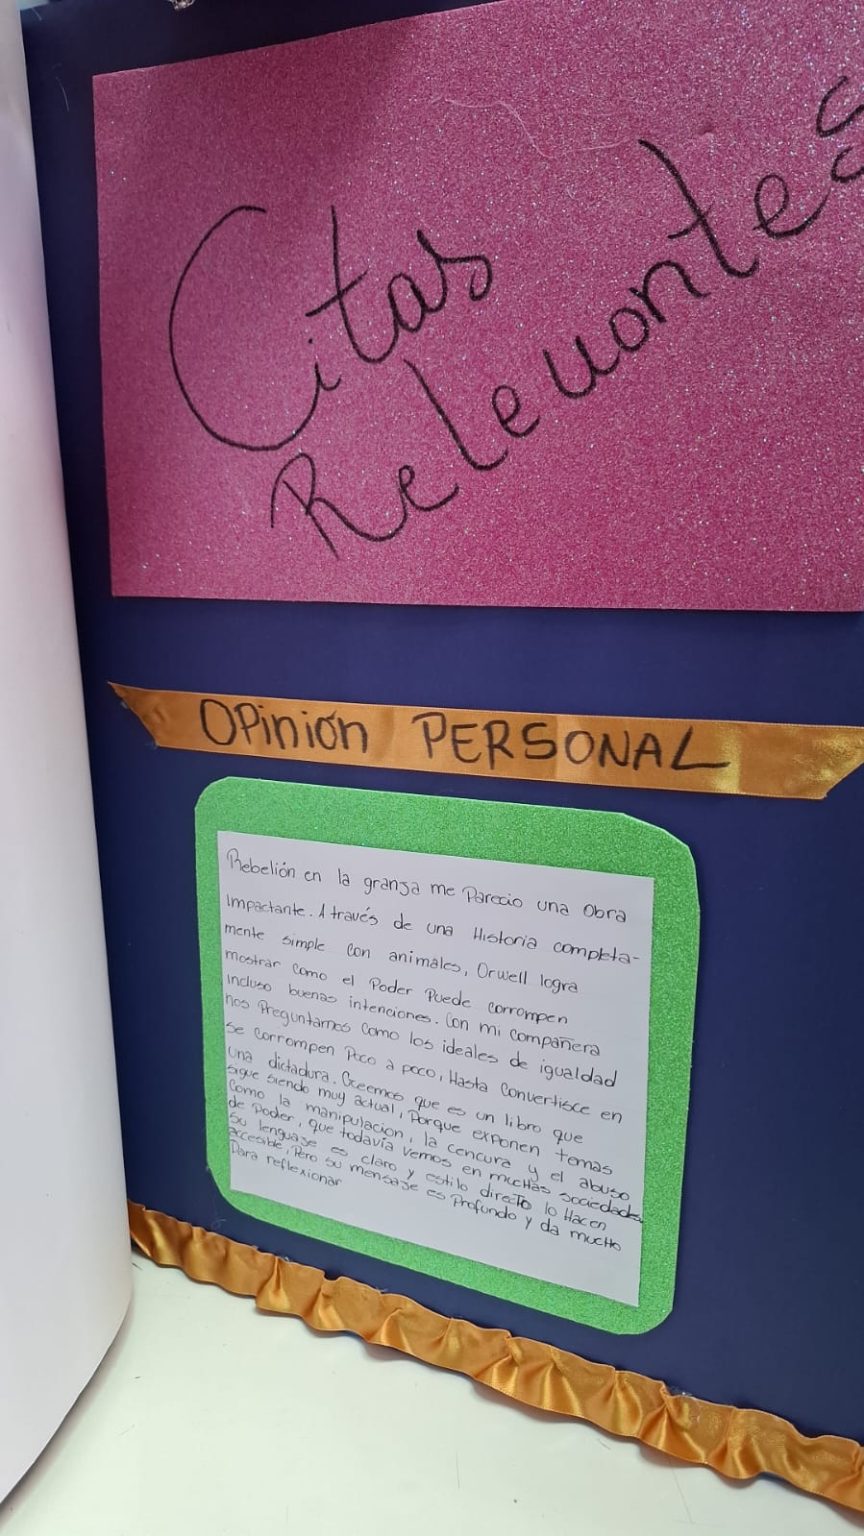 Citas
Relevantes
OPinión PERSONAL
Rebelión en la granja me Parecio una Obra
Impactante. A través de una Historia completa-
mente simple con animales, Orwell logra
mostrar como el Poder Puede corrompen
incluso buenas intenciones. Con mi compañera
nos Preguntamos como los ideales de igualdad
se corrompen Poco a poco, Hasta convertisce en
una dictadura. Creemos que es un libro que
sigue siendo muy actual, Porque exponen temas
como la manipulacion, la cencura y el abuso
de Poder, que todavía vemos en muchas sociedades
su lenguaje es claro y estilo directo lo Hacen
accesible, Pero su mensaje es Profundo y da mucho
Para reflexionar